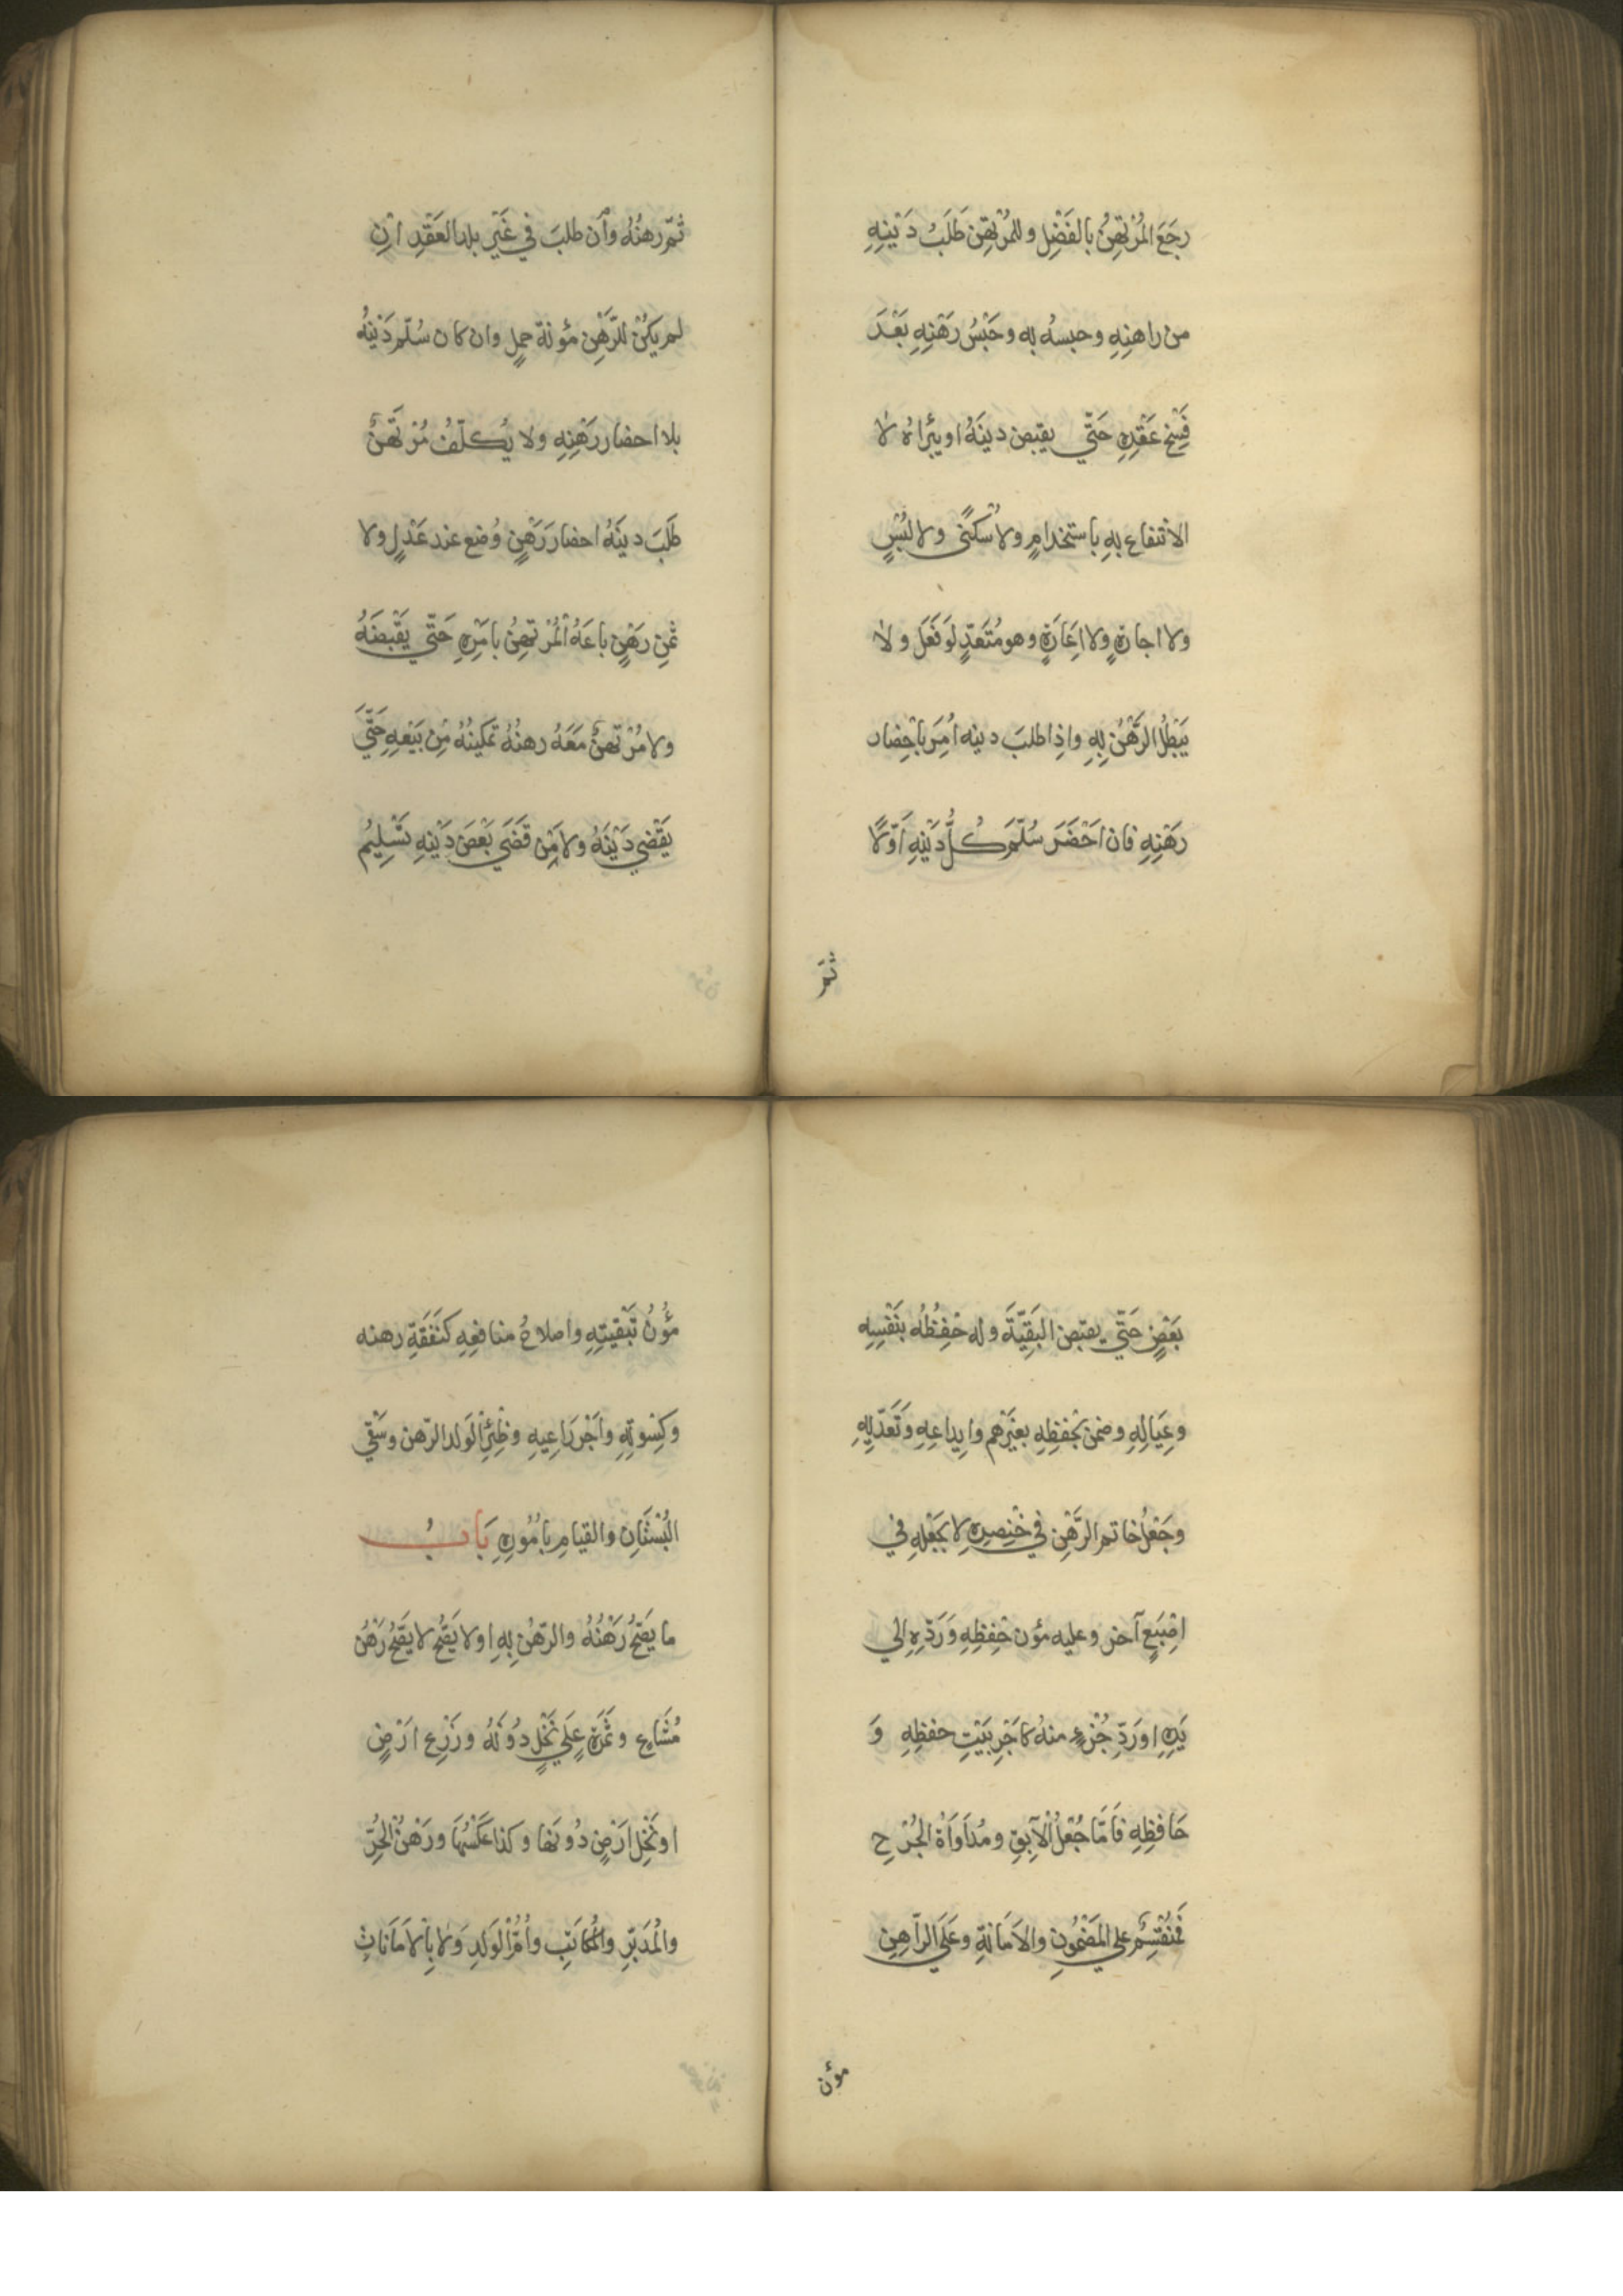 رجَعَ المُرْتهِنُ بالفَضْلِ وللمُرْتهِن طَلَبُ دَيْنِهِ
من راهنِهِ وحبسُه به وحَبْسُ رَهْنِهِ بَعْدَ
فَسْخ عَقْدِهِ حَتّي يقبض دينَهُ او يبْراَهُ لا
الانتفاع بهِ باستخدامٍ ولا سُكنًي ولا لبْسٍ
ولا اجارةٍ ولا اِعَارَةٍ وهو مُتَعَدٍّ لوَ فَعَل ولا
يَبْطُلُ الرَّهْنُ بِهِ واذا طلبَ دينه اُمِرَ باحْضار
رهَنِهِ فان احْضَرَ سُلّمَ كُلُّ دَيْنِهِ اَوّلًا
ثمَّ
ثُمّ رهنُهُ وان طلبَ في غَيْر بلد العَقْدِ اِنْ
لم يكُنْ للرَّهْنِ مؤنة حملٍ وان كان سُلّم دَيْنهُ
بلا احضار رَهْنِهِ ولا يُكلّفُ مُرْتَهنٌ
طَلَبَ دينَهُ احضارَ رَهْنٍ وُضع عند عَدْلٍ ولا
ثمنِ رَهْنٍ باعَهُ المُرْتهِنُ بامْرِهِ حَتّي يقْبضَهُ
ولا مُرْتهنٌ مَعَهُ رهنُهُ تمكينُهُ مِن بَيْعِهِ حَتَّي
يَقْضي دَيْنَهُ ولا مَنْ قَضَي بَعْضَ دَيْنِهِ تسْلِيمُ
بَعْضٍ حَتّي يقبض البَقِيّةَ وله حفِظُهُ بنَفْسِهِ
وعِيَالِهِ وضمن بحفْظِهِ بغيْرهم وايداعِهِ وَتَعَدّيِهِ
وجَعْلُ خاتم الرَّهْنِ في خْنِصرِهِ لا بجَعْلِهِ في
اصْبَعٍ آخر وعليه مؤن حفِظهِ وَرَدّهِ اِلي
يَدِهِ اورَدّ جُزْءٍ منهُ كاَجْرِ بَيْتِ حفظِهِ وَ
حَافظِهِ فاَمَّا جُعْلُ الآبِقِ ومُدَاوَاةُ الجُرْحِ
فَنُقْتَسِمٌ علي المَضْمُونِ والاَمَانةِ وعَلَي الرّاهِنِ
مؤن
مؤُنُ تبْقيتِهِ واصلاحُ منافعِهِ كنَفَقَةِ رهنه
وكِسْوتِهِ واَجْرِ رَاعِيهِ وظِئْرُ لوَلد الرّهن وسَقْي
البُسْتَانِ والقيامِ باُمُورِهِ بَابُ
ما يَصحُّ رَهْنُهُ والرّهْنُ بِهِ اولا يَصحُّ لا يَصحُّ رَهْنُ
مُشَاعٍ وثَمَرَةٍ عَلي نَخْلٍ دُونهُ وزَرْع ارْضٍ
اونَخْل ارَضٍ دُونهَا وكذا عَكْسُهَا ورَهْنُ الحُرِّ
والمُدَبّرِ والمُكَاتبِ واُمّ الوَلدِ ولا بالاَمَانَاتِ